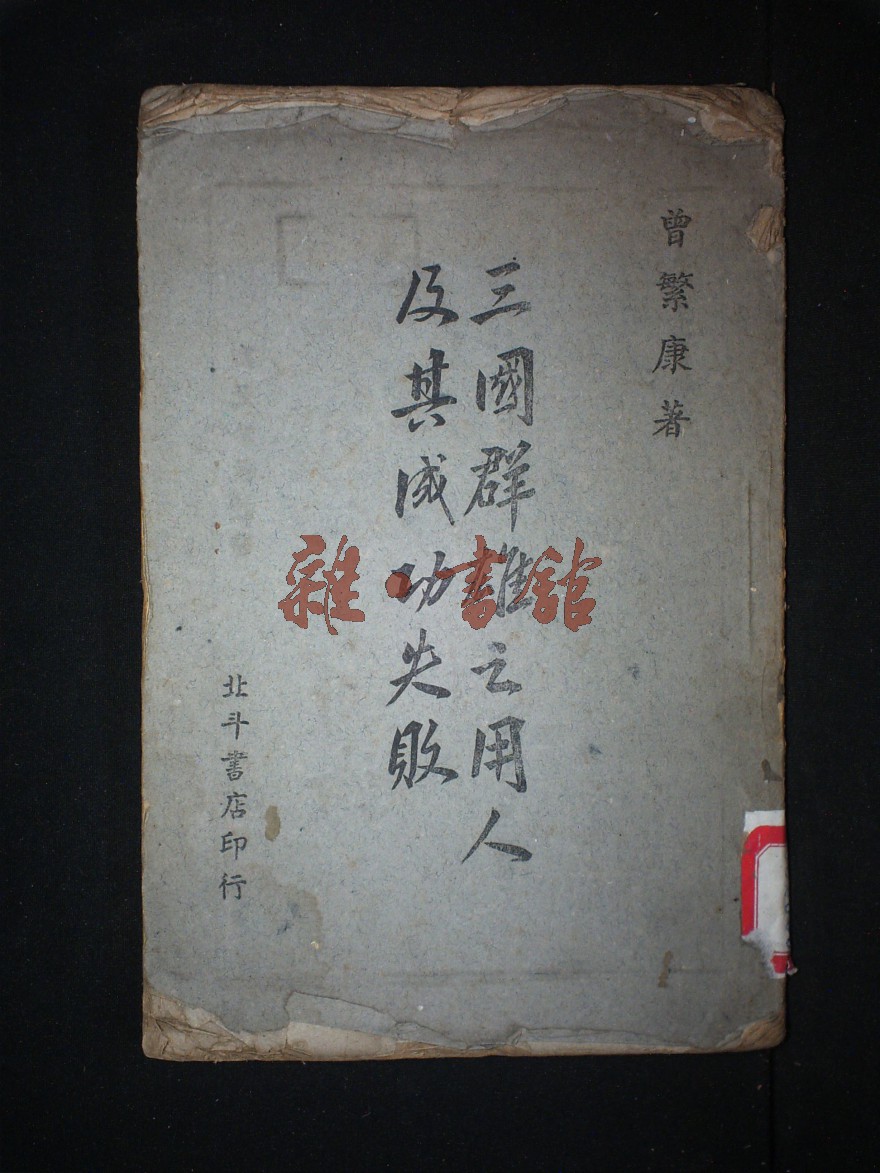 曾繁康著
三國群雄之用人
及其成功失敗
北斗書店印行
雜·書舘